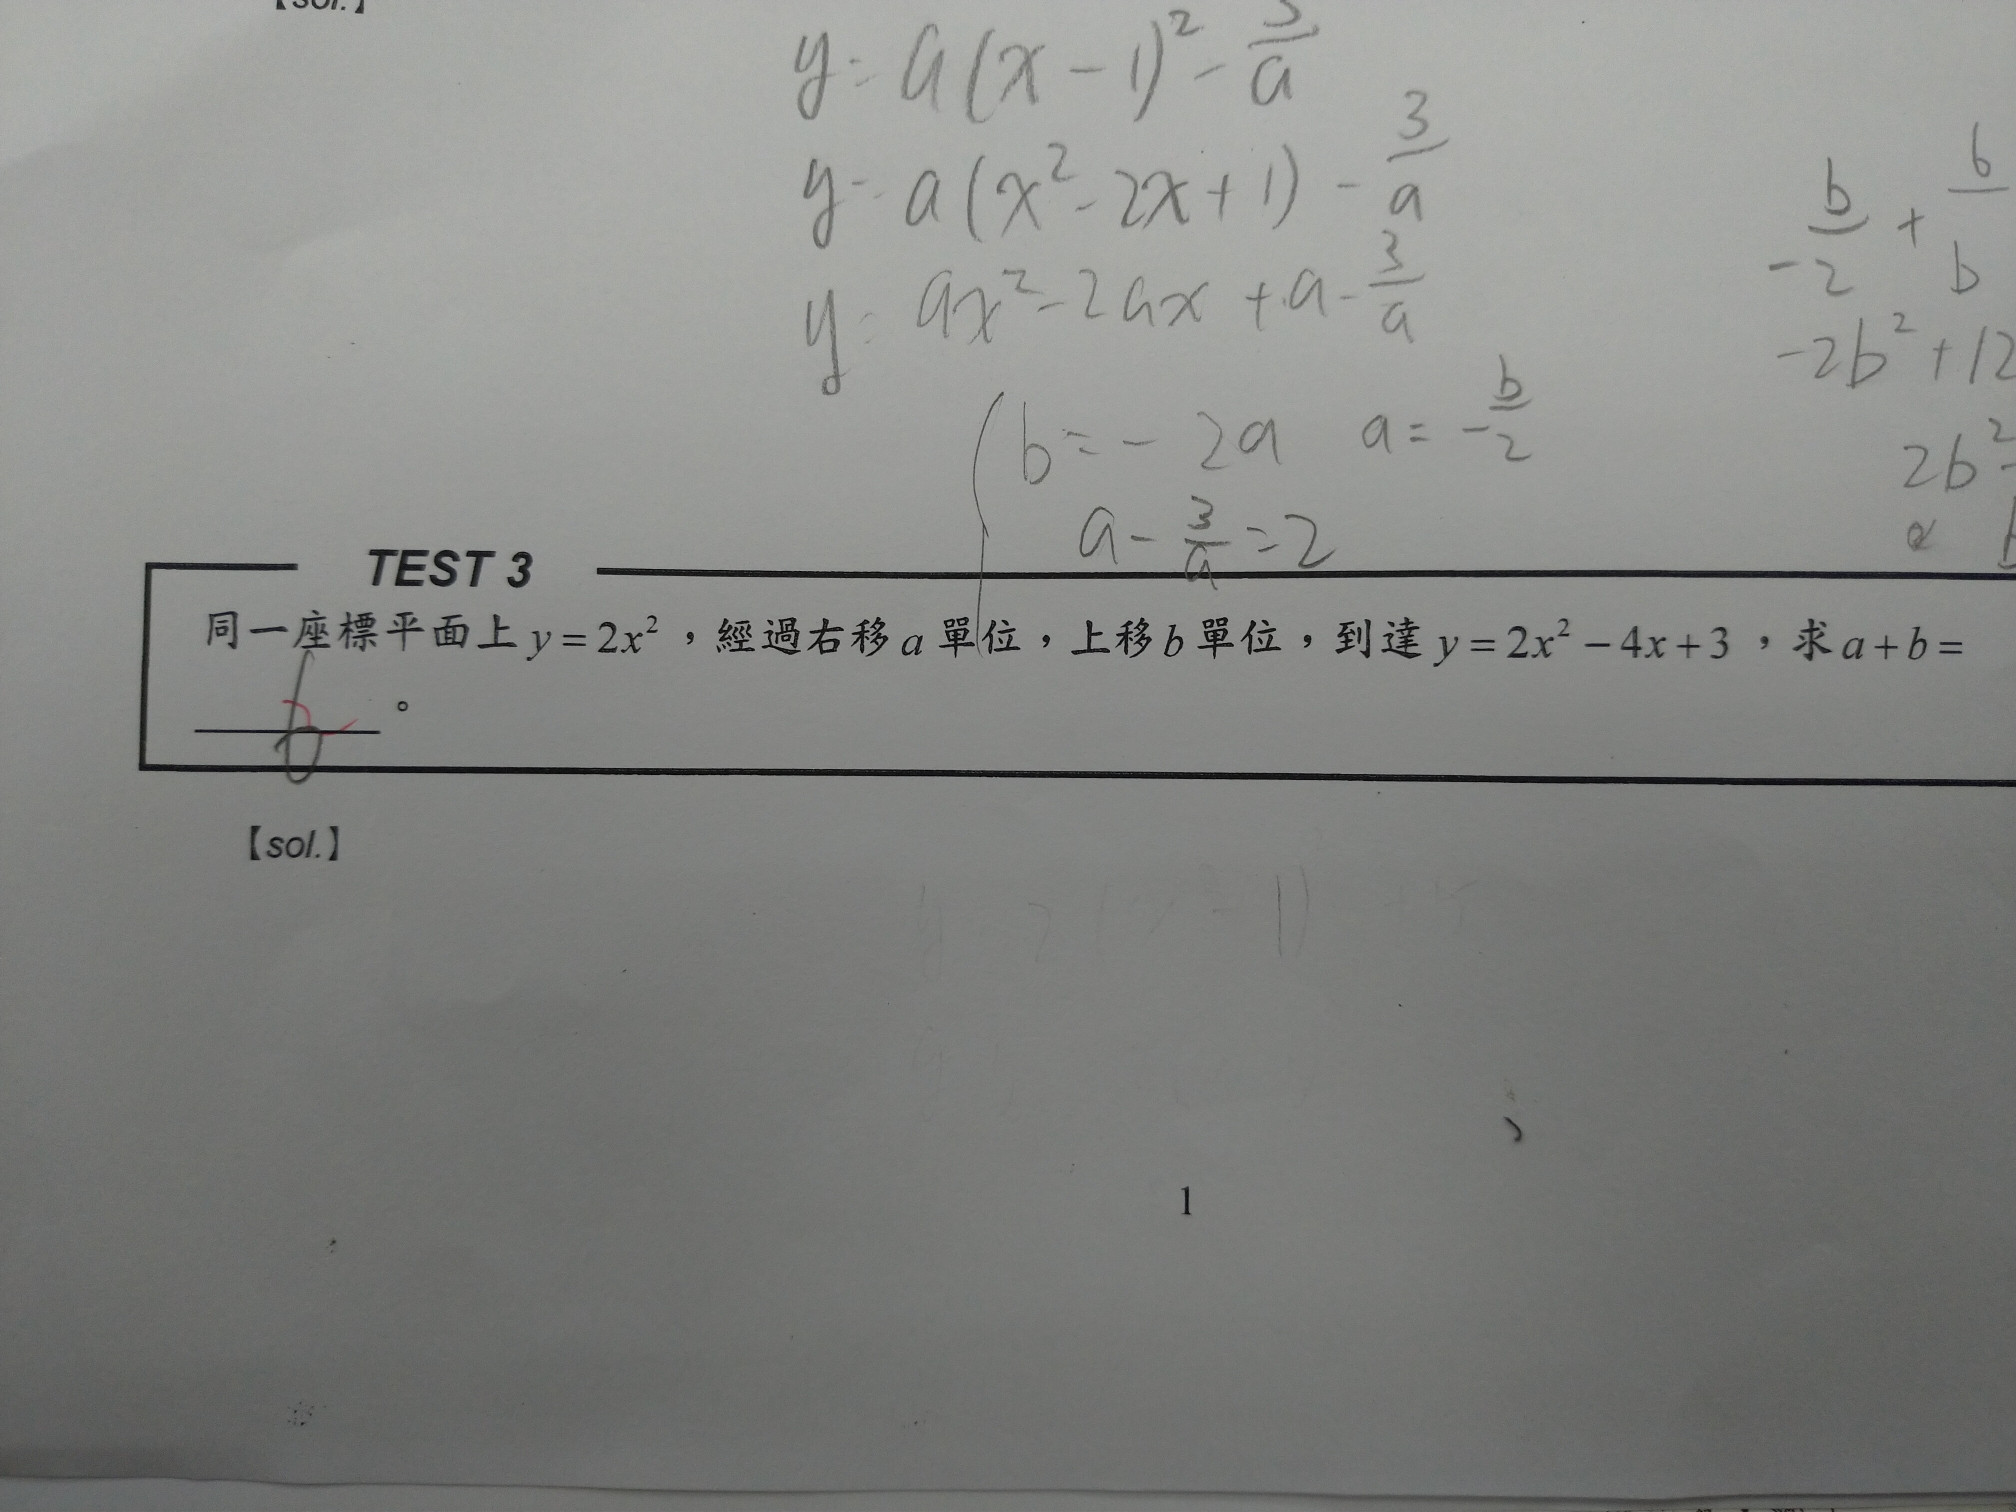 【sol.】
y = a(x-1)² - 3/a
y = a(x²-2x+1) - 3/a
y = ax²-2ax+a-3/a
b/-2 + 6/b
-2b²+12
b=-2a a=-b/2
2b²-
a-3/a=2
TEST 3
同一座標平面上 y = 2x²，經過右移 a 單位，上移 b 單位，到達 y = 2x² − 4x + 3 ，求 a + b =
。
【sol.】
1